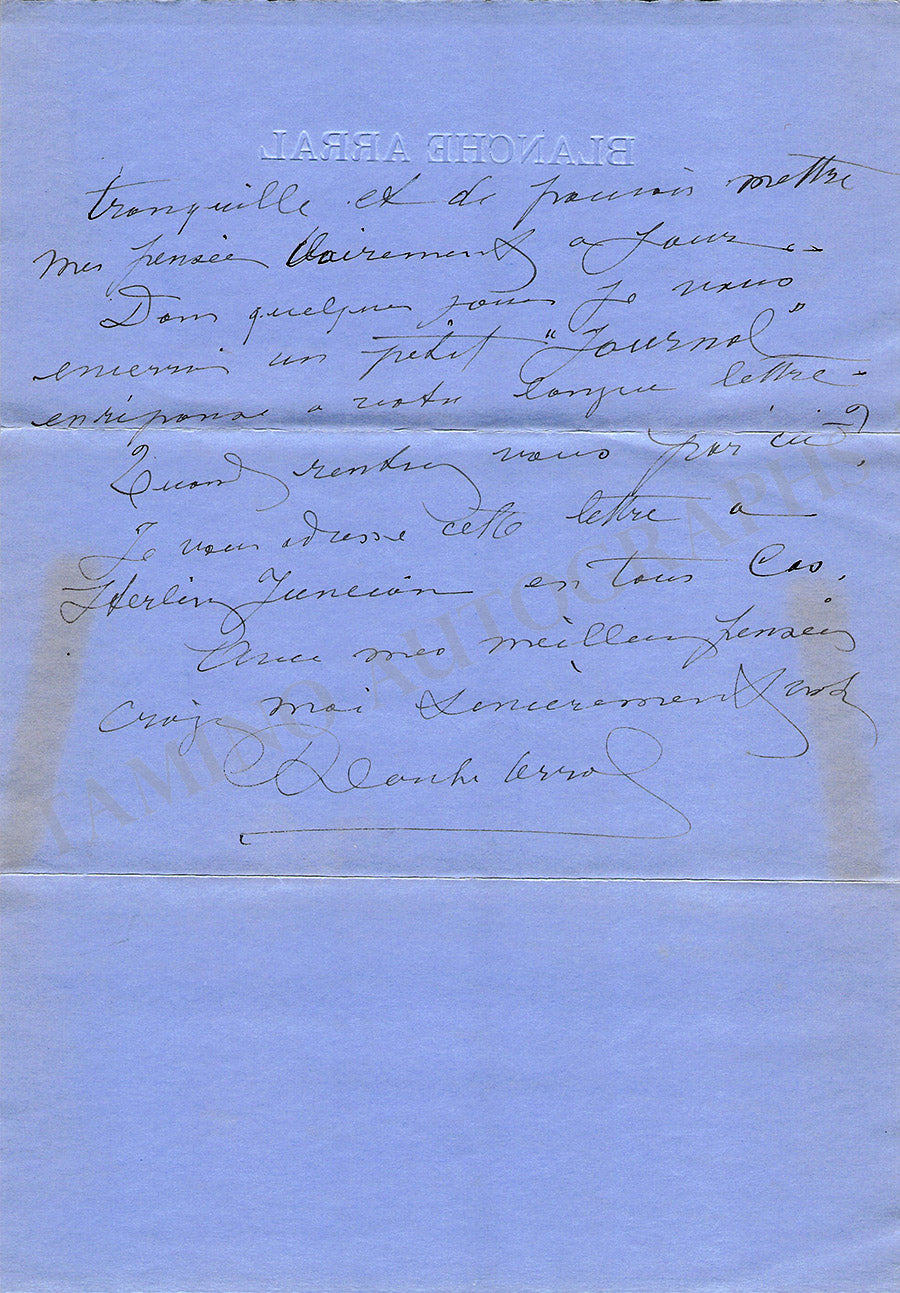 BLANCHE ARRAL
tranquille et de pouvoir mettre
mes pensées clairement a jour.-
Dans quelques jours je vous
enverrai un petit "Journal"
en réponse a votre longue lettre-
Quand rentrez vous par ici?
Je vous adresse cette lettre a
Junction en tous Cas.
Avec mes meilleures pensées
croyez moi sincèrement votre
Blanche Arral
TAMINO AUTOGRAPHS